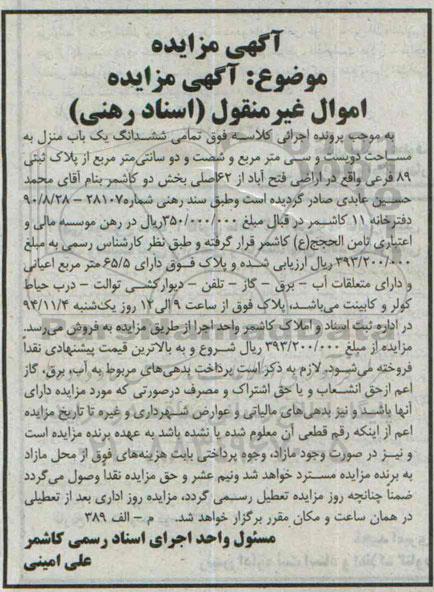 آگهی مزایده
موضوع: آگهی مزایده
اموال غیرمنقول (اسناد رهنی)
به موجب پرونده اجرائی کلاسه فوق تمامی ششدانگ یک باب منزل به
مساحت دویست و سی متر مربع و شصت و دو سانتی‌متر مربع از پلاک ثبتی
۸۹ فرعی واقع در اراضی فتح آباد از ۶۲اصلی بخش دو کاشمر بنام آقای محمد
حسین عابدی صادر گردیده است وطبق سند رهنی شماره۲۸۱۰۷ – ۹۰/۸/۲۸
دفترخانه ۱۱ کاشمر در قبال مبلغ ۳۵۰/۰۰۰/۰۰۰ریال در رهن موسسه مالی و
اعتباری ثامن الحجج(ع) کاشمر قرار گرفته و طبق نظر کارشناس رسمی به مبلغ
۳۹۳/۲۰۰/۰۰۰ ریال ارزیابی شده و پلاک فوق دارای ۶۵/۵ متر مربع اعیانی
و دارای متعلقات آب – برق – گاز – تلفن – دیوارکشی توالت – درب حیاط
کولر و کابینت می‌باشد، پلاک فوق از ساعت ۹ الی۱۲ روز یک‌شنبه ۹۴/۱۱/۴
در اداره ثبت اسناد و املاک کاشمر واحد اجرا از طریق مزایده به فروش می‌رسد.
مزایده از مبلغ ۳۹۳/۲۰۰/۰۰۰ ریال شروع و به بالاترین قیمت پیشنهادی نقداً
فروخته می‌شود، لازم به ذکر است پرداخت بدهی‌های مربوط به آب، برق، گاز
اعم ازحق انشعاب و یا حق اشتراک و مصرف درصورتی که مورد مزایده دارای
آنها باشد و نیز بدهی‌های مالیاتی و عوارض شهرداری و غیره تا تاریخ مزایده
اعم از اینکه رقم قطعی آن معلوم شده یا نشده باشد به عهده برنده مزایده است
و نیز در صورت وجود مازاد، وجوه پرداختی بابت هزینه‌های فوق از محل مازاد
به برنده مزایده مسترد خواهد شد ونیم عشر و حق مزایده نقداً وصول می‌گردد
ضمنا چنانچه روز مزایده تعطیل رسمی گردد، مزایده روز اداری بعد از تعطیلی
در همان ساعت و مکان مقرر برگزار خواهد شد. م – الف ۳۸۹
مسئول واحد اجرای اسناد رسمی کاشمر
علی امینی